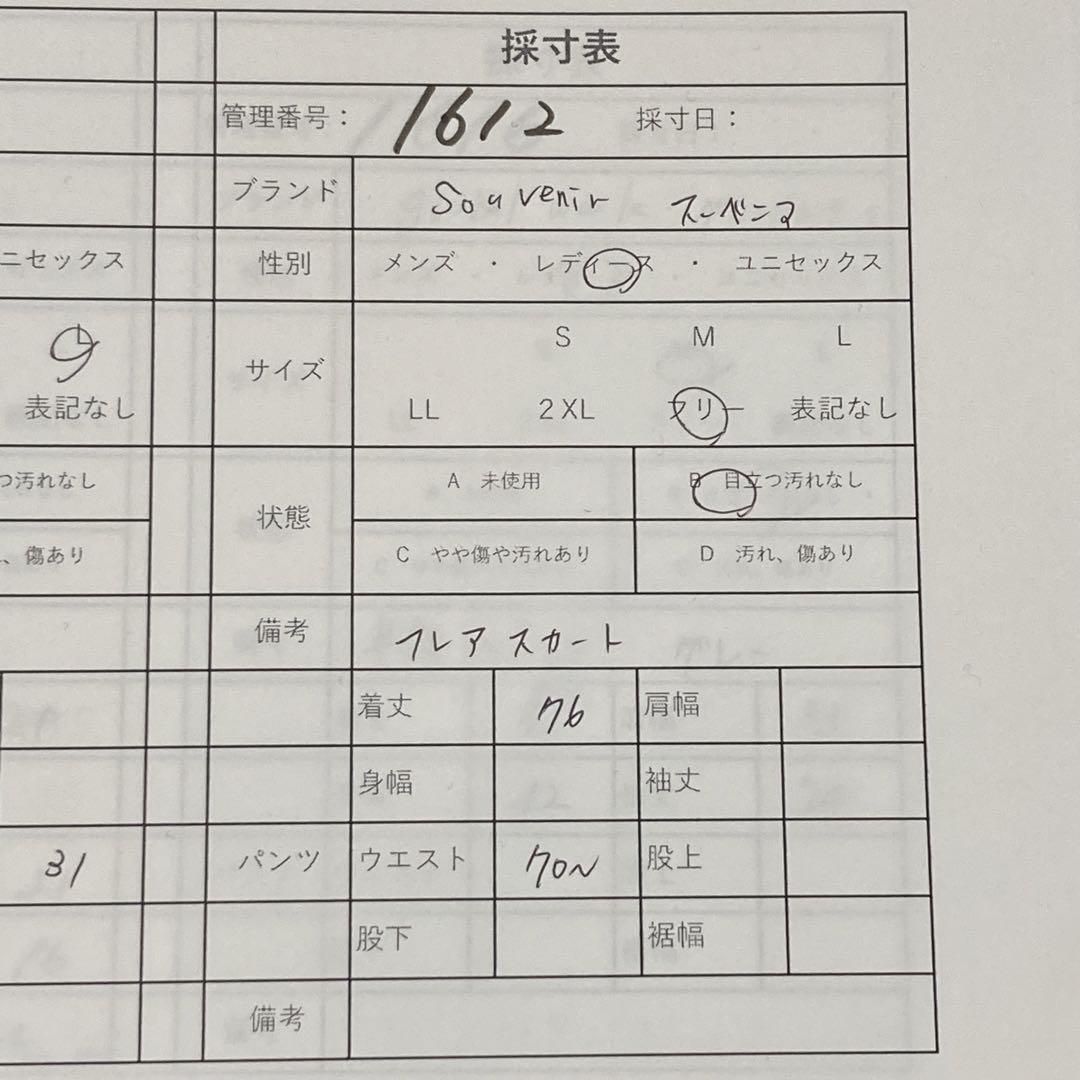 採寸表
管理番号： 1612 採寸日：
ブランド Souvenir スーベニア
ニセックス 性別 メンズ ・ レディース ・ ユニセックス
サイズ
S M L
表記なし LL 2XL フリー 表記なし
つ汚れなし A 未使用 B 目立つ汚れなし
状態
、傷あり C やや傷や汚れあり D 汚れ、傷あり
備考 フレアスカート
着丈 76 肩幅
身幅 袖丈
31 パンツ ウエスト 70~ 股上
股下 裾幅
備考